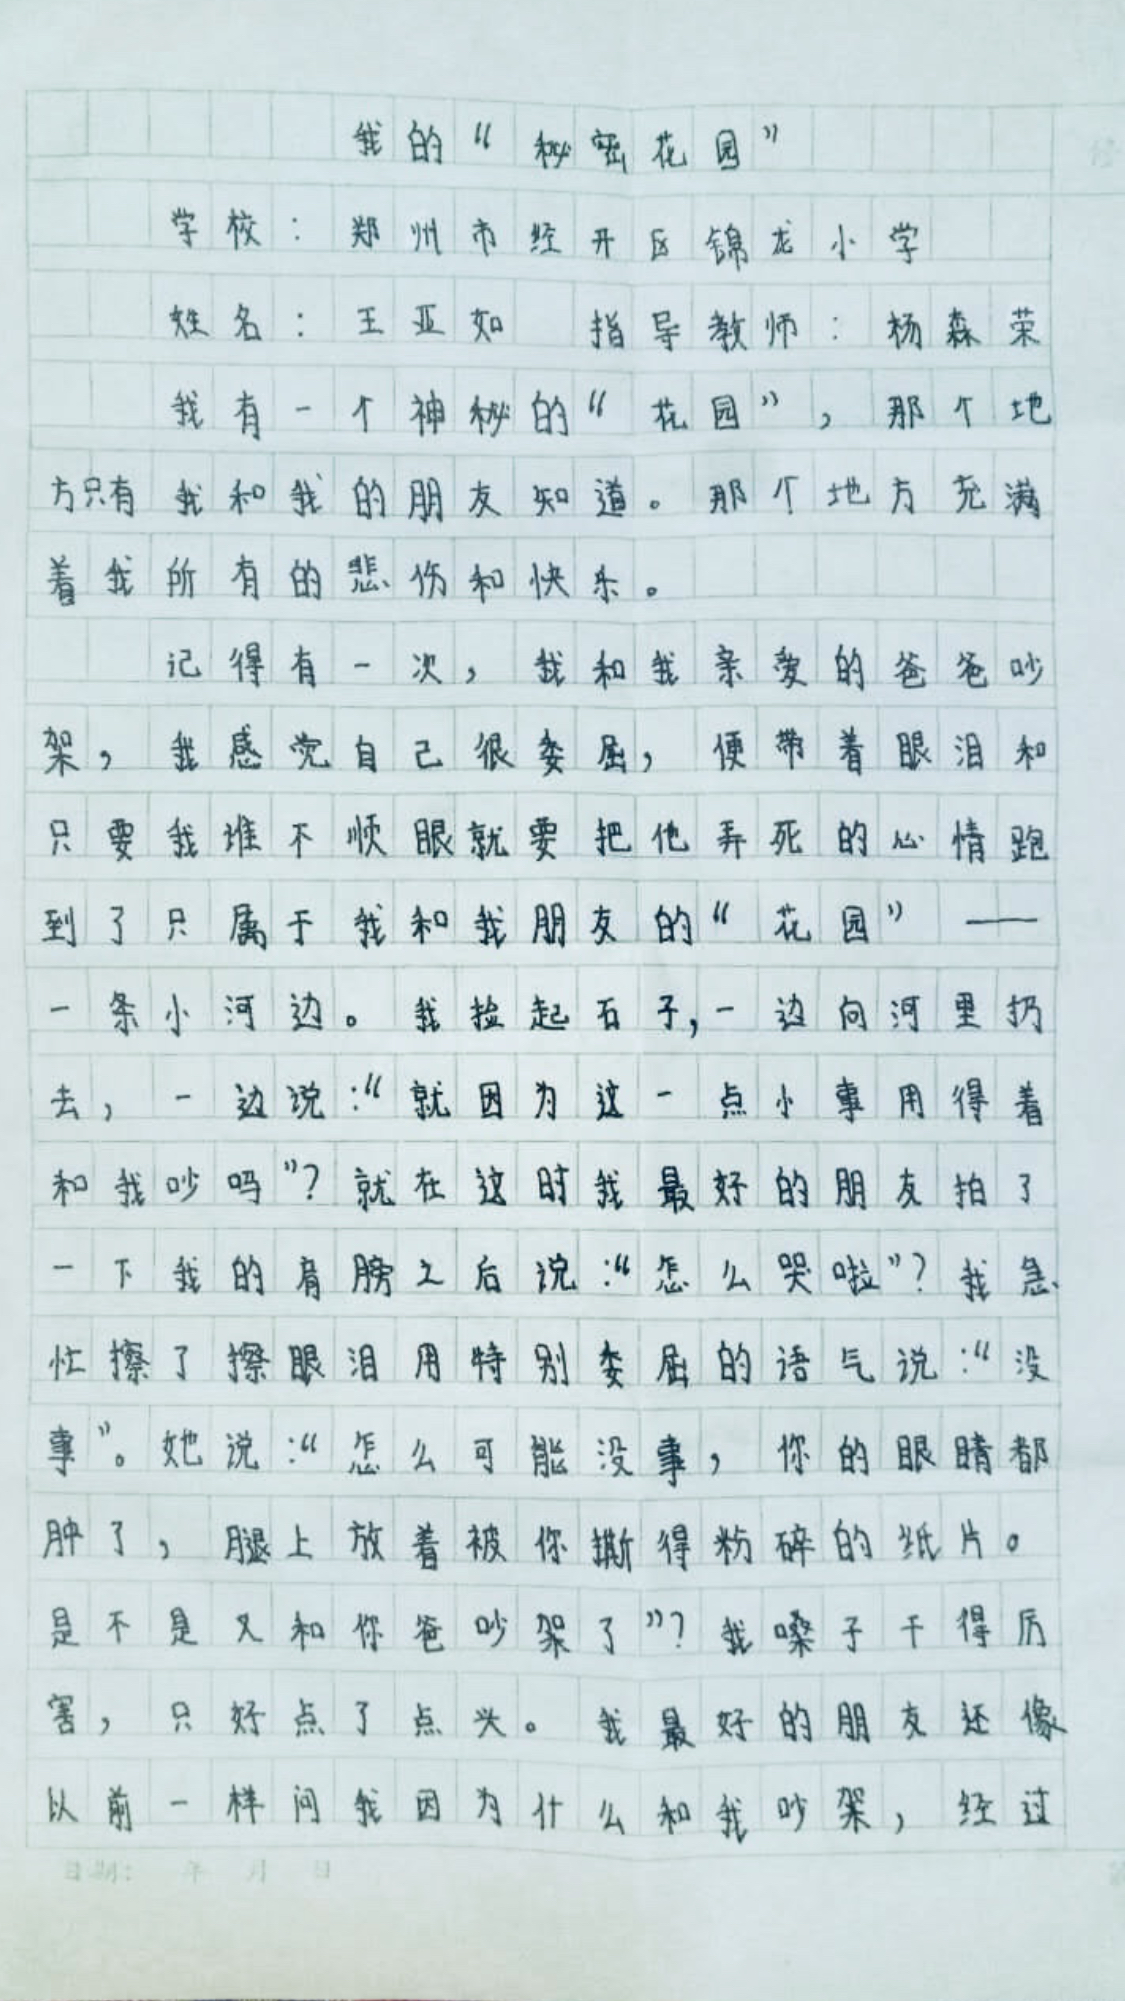 我的“秘密花园”
学校：郑州市经开区锦龙小学
姓名：王亚如 指导教师：杨森荣
我有一个神秘的“花园”，那个地
方只有我和我的朋友知道。那个地方充满
着我所有的悲伤和快乐。
记得有一次，我和我亲爱的爸爸吵
架，我感觉自己很委屈，便带着眼泪和
只要我谁不顺眼就要把他弄死的心情跑
到了只属于我和我朋友的“花园”——
一条小河边。我捡起石子，一边向河里扔
去，一边说：“就因为这一点小事用得着
和我吵吗”？就在这时我最好的朋友拍了
一下我的肩膀之后说：“怎么哭啦”？我急
忙擦了擦眼泪用特别委屈的语气说：“没
事”。她说：“怎么可能没事，你的眼睛都
肿了，腿上放着被你撕得粉碎的纸片。
是不是又和你爸吵架了”？我嗓子干得厉
害，只好点了点头。我最好的朋友还像
以前一样问我因为什么和我吵架，经过
日期： 年 月 日